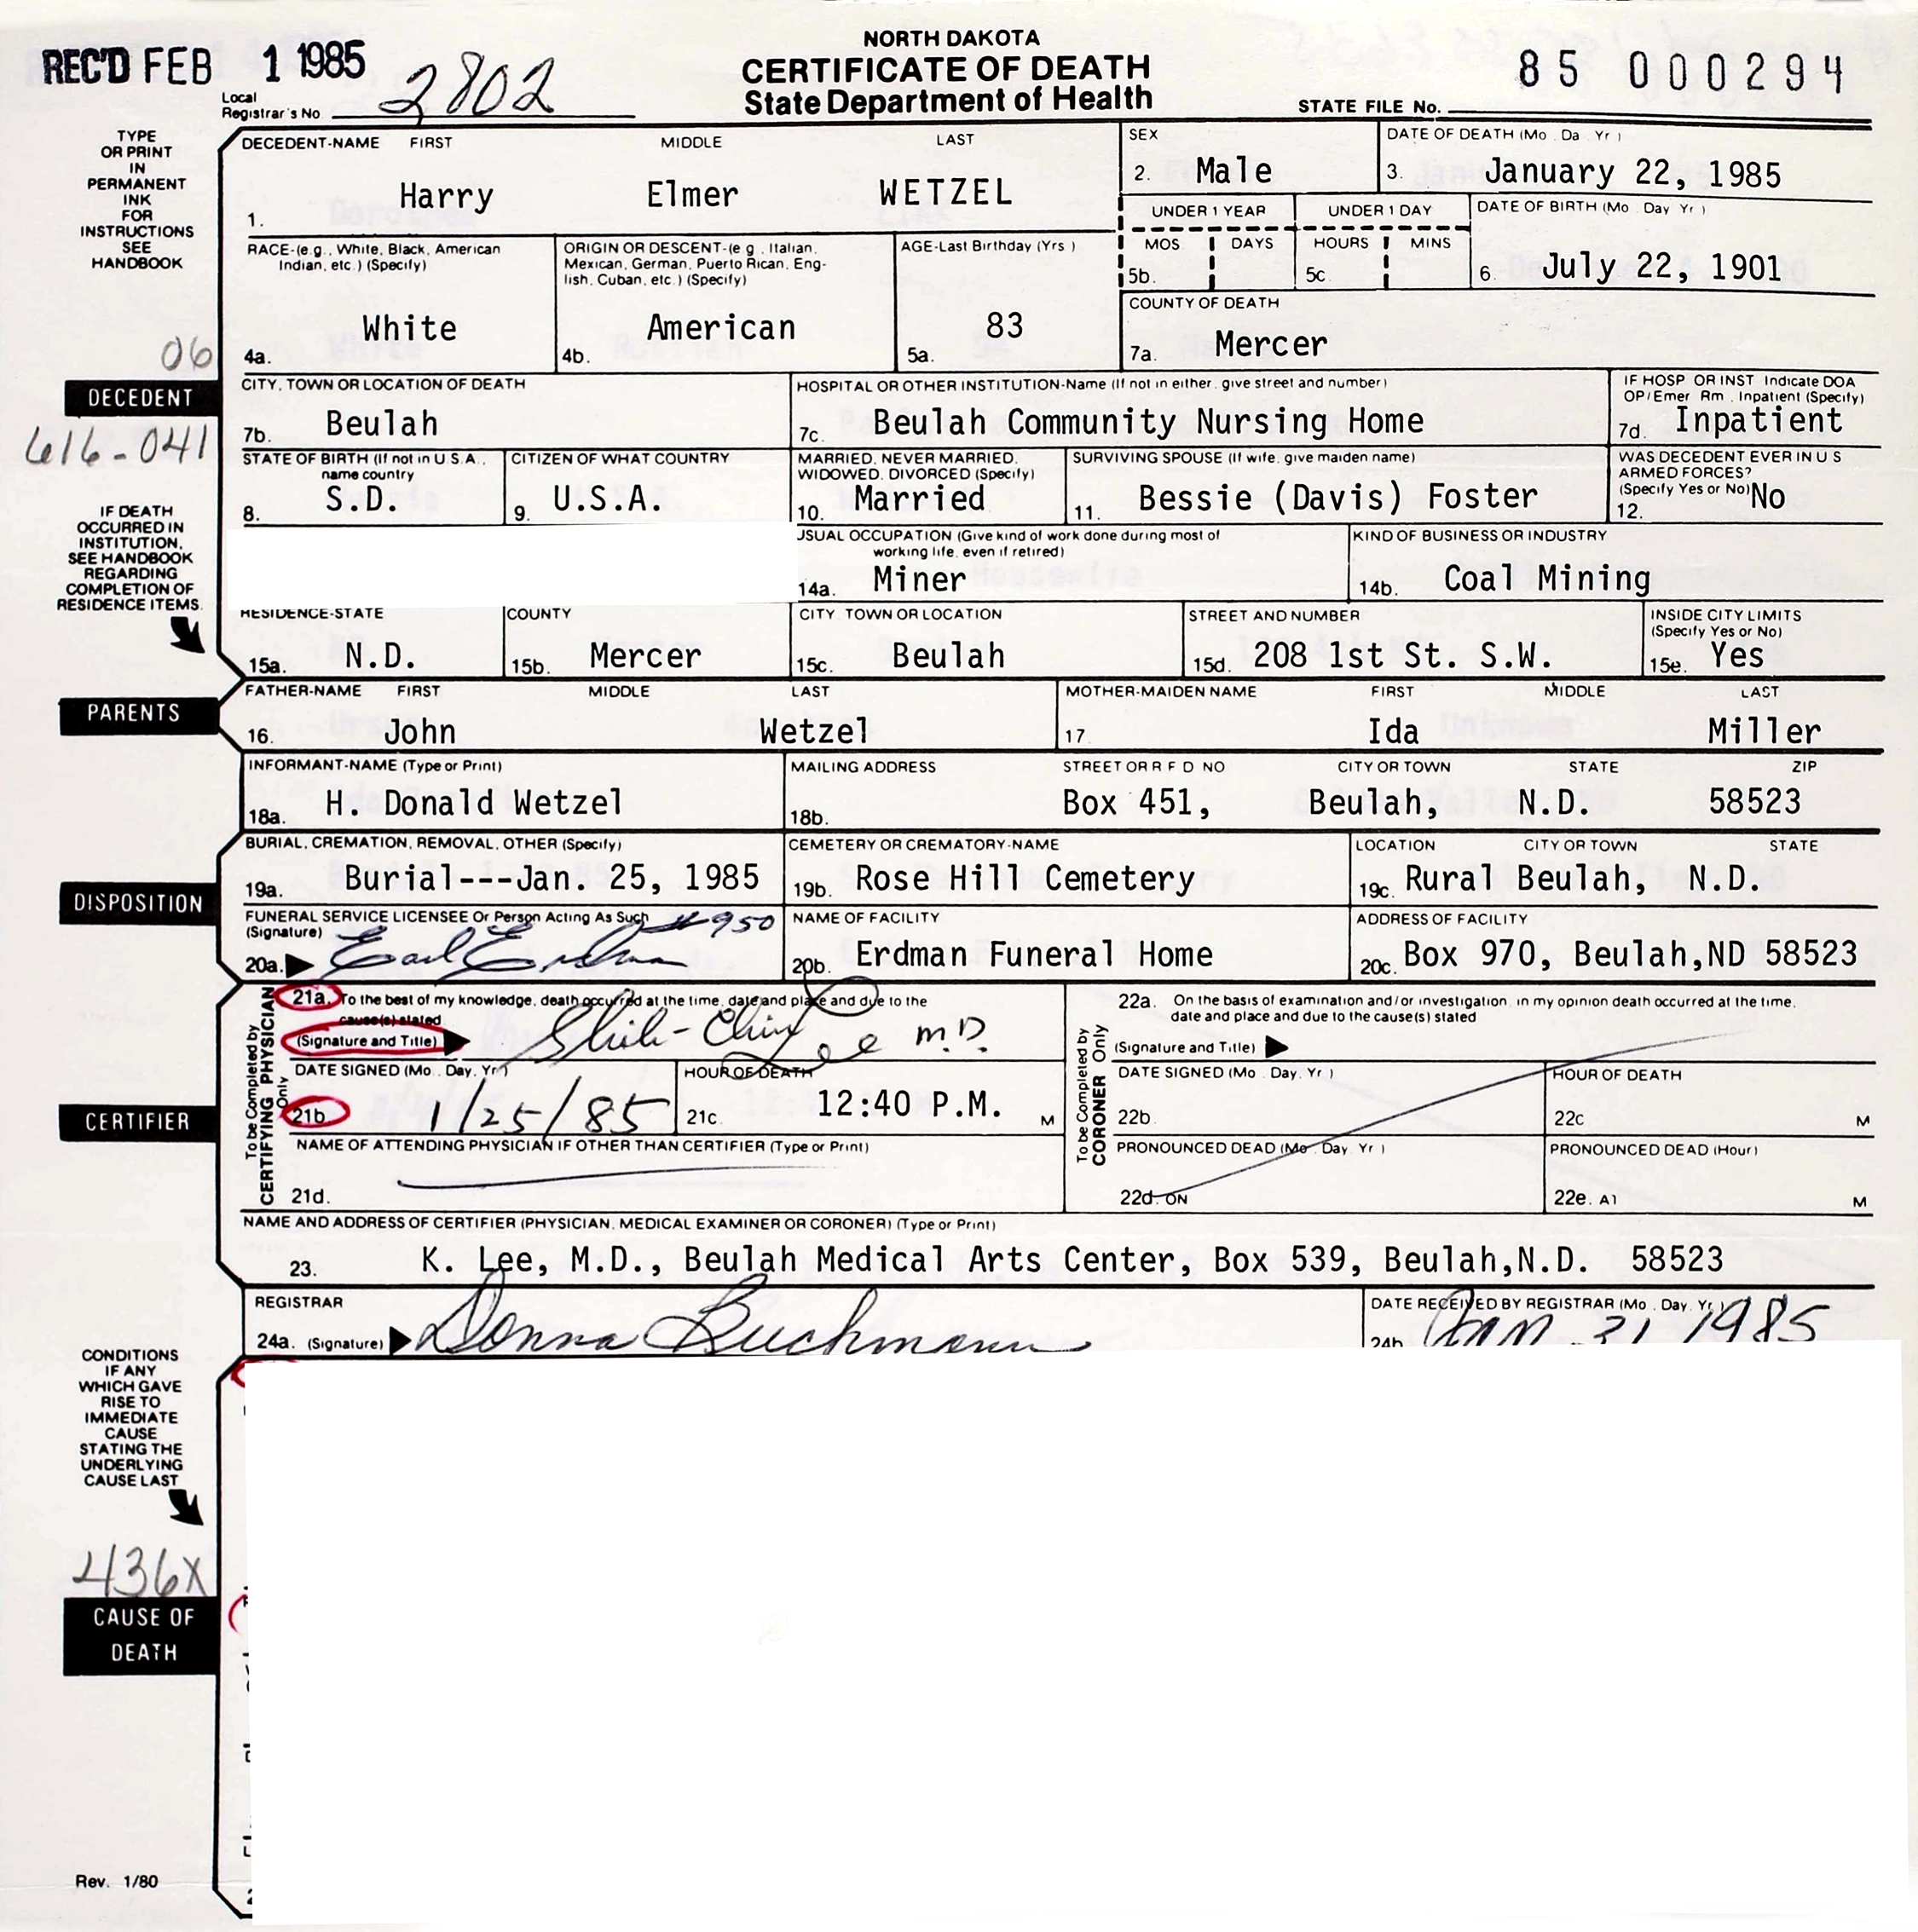 REC'D FEB 1 1985
NORTH DAKOTA
CERTIFICATE OF DEATH
State Department of Health
85 000294
Local Registrar's No 2802
STATE FILE No.
TYPE OR PRINT IN PERMANENT INK FOR INSTRUCTIONS SEE HANDBOOK
DECEDENT-NAME FIRST MIDDLE LAST
1. Harry Elmer WETZEL
SEX
2. Male
DATE OF DEATH (Mo. Da. Yr.)
3. January 22, 1985
RACE-(e.g., White, Black, American Indian, etc.) (Specify)
4a. White
ORIGIN OR DESCENT-(e.g., Italian, Mexican, German, Puerto Rican, English, Cuban, etc.) (Specify)
4b. American
AGE-Last Birthday (Yrs.)
5a. 83
UNDER 1 YEAR
MOS DAYS
5b.
UNDER 1 DAY
HOURS MINS
5c.
DATE OF BIRTH (Mo. Day Yr.)
6. July 22, 1901
COUNTY OF DEATH
7a. Mercer
06
DECEDENT
616-041
CITY, TOWN OR LOCATION OF DEATH
7b. Beulah
HOSPITAL OR OTHER INSTITUTION-Name (If not in either, give street and number)
7c. Beulah Community Nursing Home
IF HOSP OR INST Indicate DOA OP/Emer Rm. Inpatient (Specify)
7d. Inpatient
STATE OF BIRTH (If not in U.S.A., name country
8. S.D.
CITIZEN OF WHAT COUNTRY
9. U.S.A.
MARRIED, NEVER MARRIED, WIDOWED, DIVORCED (Specify)
10. Married
SURVIVING SPOUSE (If wife, give maiden name)
11. Bessie (Davis) Foster
WAS DECEDENT EVER IN U S ARMED FORCES? (Specify Yes or No)
12. No
IF DEATH OCCURRED IN INSTITUTION, SEE HANDBOOK REGARDING COMPLETION OF RESIDENCE ITEMS.
USUAL OCCUPATION (Give kind of work done during most of working life, even if retired)
14a. Miner
KIND OF BUSINESS OR INDUSTRY
14b. Coal Mining
RESIDENCE-STATE
15a. N.D.
COUNTY
15b. Mercer
CITY TOWN OR LOCATION
15c. Beulah
STREET AND NUMBER
15d. 208 1st St. S.W.
INSIDE CITY LIMITS (Specify Yes or No)
15e. Yes
PARENTS
FATHER-NAME FIRST MIDDLE LAST
16. John Wetzel
MOTHER-MAIDEN NAME FIRST MIDDLE LAST
17. Ida Miller
INFORMANT-NAME (Type or Print)
18a. H. Donald Wetzel
MAILING ADDRESS STREET OR R F D NO CITY OR TOWN STATE ZIP
18b. Box 451, Beulah, N.D. 58523
DISPOSITION
BURIAL, CREMATION, REMOVAL, OTHER (Specify)
19a. Burial---Jan. 25, 1985
CEMETERY OR CREMATORY-NAME
19b. Rose Hill Cemetery
LOCATION CITY OR TOWN STATE
19c. Rural Beulah, N.D.
FUNERAL SERVICE LICENSEE Or Person Acting As Such
(Signature)
20a. Earl Erdman #950
NAME OF FACILITY
20b. Erdman Funeral Home
ADDRESS OF FACILITY
20c. Box 970, Beulah,ND 58523
CERTIFIER
To be Completed by CERTIFYING PHYSICIAN Only
21a. To the best of my knowledge, death occurred at the time, date and place and due to the cause(s) stated
(Signature and Title) Shih-Chin Lee M.D.
DATE SIGNED (Mo. Day. Yr.)
21b 1/25/85
HOUR OF DEATH
21c. 12:40 P.M. M
NAME OF ATTENDING PHYSICIAN IF OTHER THAN CERTIFIER (Type or Print)
21d.
To be Completed by CORONER Only
22a. On the basis of examination and/or investigation, in my opinion death occurred at the time, date and place and due to the cause(s) stated
(Signature and Title)
DATE SIGNED (Mo. Day. Yr.)
22b.
HOUR OF DEATH
22c M
PRONOUNCED DEAD (Mo. Day. Yr.)
22d. ON
PRONOUNCED DEAD (Hour)
22e. AT M
NAME AND ADDRESS OF CERTIFIER (PHYSICIAN, MEDICAL EXAMINER OR CORONER) (Type or Print)
23. K. Lee, M.D., Beulah Medical Arts Center, Box 539, Beulah,N.D. 58523
REGISTRAR
24a. (Signature) Donna Buchmann
DATE RECEIVED BY REGISTRAR (Mo. Day. Yr.)
24b Jan 31 1985
CONDITIONS IF ANY WHICH GAVE RISE TO IMMEDIATE CAUSE STATING THE UNDERLYING CAUSE LAST
436X
CAUSE OF DEATH
Rev. 1/80